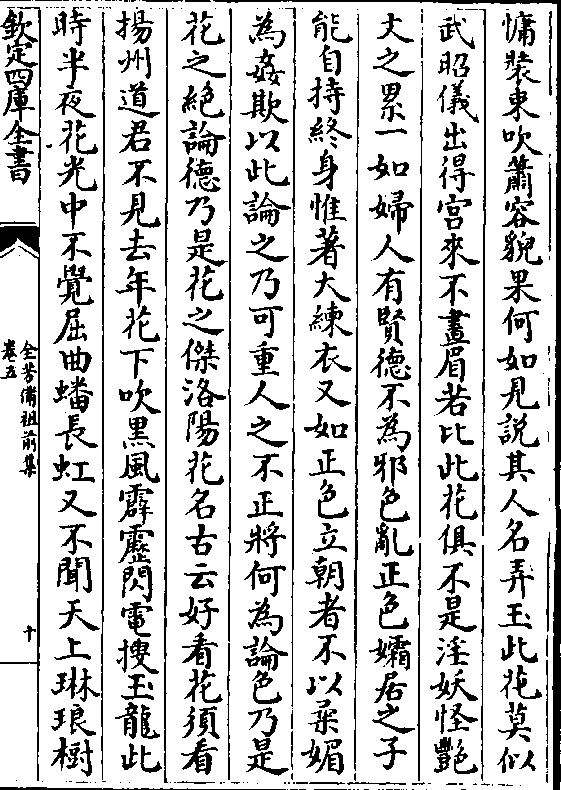 慵裝束吹簫容貌果何如見說其人名弄玉此花莫似
武昭儀出得宮來不畫眉若比此花俱不是淫妖怪艷
大之累一如婦人有賢德不為邪色亂正色孀居之子
能自持終身惟著大練衣又如正色立朝者不以柔媚
為姦欺以此論之乃可重人之不正將何為論色乃是
花之絕論德乃是花之傑洛陽花名古云好看花須看
揚州道君不見去年花下吹黑風霹靂閃電搜玉龍此
時半夜花光中不覺屈曲蟠長虹又不聞天上琳琅樹
欽定四庫全書
全芳備祖前集
卷五
十